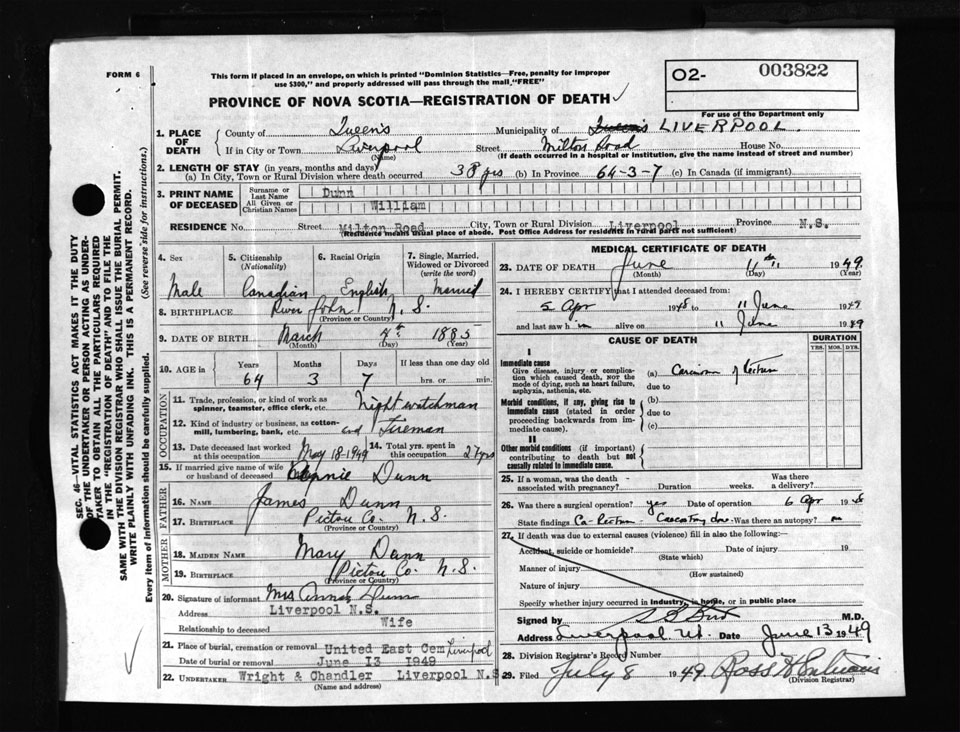 FORM 6
This form if placed in an envelope, on which is printed "Dominion Statistics—Free, penalty for improper
use $300," and properly addressed will pass through the mail "FREE"
O2- 003822
For use of the Department only
PROVINCE OF NOVA SCOTIA—REGISTRATION OF DEATH
1. PLACE OF DEATH
County of Queen's Municipality of Queen's LIVERPOOL.
If in City or Town Liverpool Street Milton Road House No.
(Name) (If death occurred in a hospital or institution, give the name instead of street and number)
2. LENGTH OF STAY (in years, months and days)
(a) In City, Town or Rural Division where death occurred 38 yrs (b) In Province 64-3-7 (c) In Canada (if immigrant)
3. PRINT NAME OF DECEASED
Surname or Last Name Dunn
All Given or Christian Names William
RESIDENCE No. Street Milton Road City, Town or Rural Division Liverpool Province N.S.
(Residence means usual place of abode. Post Office Address for residents in rural parts not sufficient)
4. Sex 5. Citizenship (Nationality) 6. Racial Origin 7. Single, Married, Widowed or Divorced (write the word)
Male Canadian English Married
8. BIRTHPLACE River John N. S.
(Province or Country)
9. DATE OF BIRTH March 4th 1885
(Month) (Day) (Year)
10. AGE in Years Months Days If less than one day old
64 3 7 hrs. or min.
OCCUPATION
11. Trade, profession, or kind of work as
spinner, teamster, office clerk, etc. Night watchman
12. Kind of industry or business, as cotton-
mill, lumbering, bank, etc. and Fireman
13. Date deceased last worked at this occupation May 18-1949 14. Total yrs. spent in this occupation 27 yrs
15. If married give name of wife
or husband of deceased Annie Dunn
FATHER
16. NAME James Dunn
17. BIRTHPLACE Pictou Co. N. S.
(Province or Country)
MOTHER
18. MAIDEN NAME Mary Dunn
19. BIRTHPLACE Pictou Co. N. S.
(Province or Country)
20. Signature of informant Mrs Annie Dunn
Address Liverpool N.S.
Relationship to deceased Wife
21. Place of burial, cremation or removal United East Cem Liverpool
Date of burial or removal June 13 1949
22. UNDERTAKER Wright & Chandler Liverpool N.S
(Name and address)
MEDICAL CERTIFICATE OF DEATH
23. DATE OF DEATH June 11th 1949
(Month) (Day) (Year)
24. I HEREBY CERTIFY that I attended deceased from:
5 Apr 1948 to 11 June 1949
and last saw him alive on 11 June 1949
CAUSE OF DEATH DURATION
YRS. MOS. DYS.
I
Immediate cause
Give disease, injury or complica-
tion which caused death, NOT the
mode of dying, such as heart failure,
asphyxia, asthenia, etc.
(a) Carcinoma of Rectum
due to
Morbid conditions, if any, giving rise to
immediate cause (stated in order
proceeding backwards from im-
mediate cause).
(b)
due to
(c)
II
Other morbid conditions (if important)
contributing to death but not
causally related to immediate cause.
25. If a woman, was the death
associated with pregnancy? Duration weeks. Was there a delivery?
26. Was there a surgical operation? yes Date of operation 6 Apr 1948
State findings Ca-Rectum Was there an autopsy? no
27. If death was due to external causes (violence) fill in also the following:—
Accident, suicide or homicide? Date of injury 19
(State which)
Manner of injury
(How sustained)
Nature of injury
Specify whether injury occurred in industry, in home, or in public place
Signed by M.D.
Address Liverpool N.S. Date June 13 1949
28. Division Registrar's Record Number
29. Filed July 8 1949 Ross
(Division Registrar)
SEC. 46—VITAL STATISTICS ACT MAKES IT THE DUTY
OF THE UNDERTAKER OR PERSON ACTING AS UNDER-
TAKER TO OBTAIN ALL THE PARTICULARS REQUIRED
IN THE "REGISTRATION OF DEATH" AND TO FILE THE
SAME WITH THE DIVISION REGISTRAR WHO SHALL ISSUE THE BURIAL PERMIT.
WRITE PLAINLY WITH UNFADING INK. THIS IS A PERMANENT RECORD.
Every item of information should be carefully supplied. (See reverse side for instructions.)